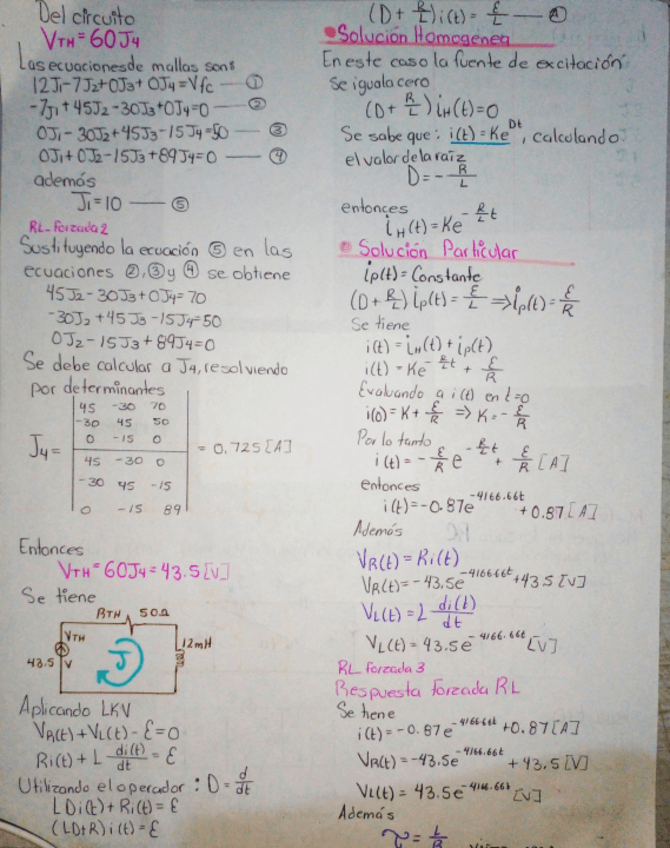 Del circuito
VTH = 60J4
Las ecuaciones de mallas son:
12J1 - 7J2 + 0J3 + 0J4 = Vfc — ①
-7J1 + 45J2 - 30J3 + 0J4 = 0 — ②
0J1 - 30J2 + 45J3 - 15J4 = 50 — ③
0J1 + 0J2 - 15J3 + 89J4 = 0 — ④
además
J1 = 10 — ⑤
RL-Forzada 2
Sustituyendo la ecuación ⑤ en las
ecuaciones ②, ③ y ④ se obtiene
45J2 - 30J3 + 0J4 = 70
-30J2 + 45J3 - 15J4 = 50
0J2 - 15J3 + 89J4 = 0
Se debe calcular a J4, resolviendo
por determinantes
45 -30 70
-30 45 50
0 -15 0
J4 = = 0.725 [A]
45 -30 0
-30 45 -15
0 -15 89
Entonces
VTH = 60J4 = 43.5 [V]
Se tiene
RTH 50Ω
VTH
43.5 V
J
12mH
Aplicando LKV
VR(t) + VL(t) - ε = 0
Ri(t) + L di(t)/dt = ε
Utilizando el operador: D = d/dt
LDi(t) + Ri(t) = ε
(LD+R) i(t) = ε
(D + R/L) i(t) = ε/L — Ⓐ
Solución Homogenea
En este caso la fuente de excitación
se iguala cero
(D + R/L) iH(t) = 0
Se sabe que: i(t) = Ke^Dt, calculando
el valor de la raíz
D = - R/L
entonces
iH(t) = Ke^- R/L t
Solución Particular
ip(t) = Constante
(D + R/L) ip(t) = ε/L ⇒ ip(t) = ε/R
Se tiene
i(t) = iH(t) + ip(t)
i(t) = Ke^- R/L t + ε/R
Evaluando a i(t) en t=0
i(0) = K + ε/R ⇒ K = - ε/R
Por lo tanto
i(t) = - ε/R e^- R/L t + ε/R [A]
entonces
i(t) = -0.87e^-4166.66t + 0.87 [A]
Además
VR(t) = Ri(t)
VR(t) = -43.5e^-4166.66t + 43.5 [V]
VL(t) = L di(t)/dt
VL(t) = 43.5e^-4166.66t [V]
RL forzada 3
Respuesta Forzada RL
Se tiene
i(t) = -0.87e^-4166.66t + 0.87 [A]
VR(t) = -43.5e^-4166.66t + 43.5 [V]
VL(t) = 43.5e^-4166.66t [V]
Además
τ = L/R